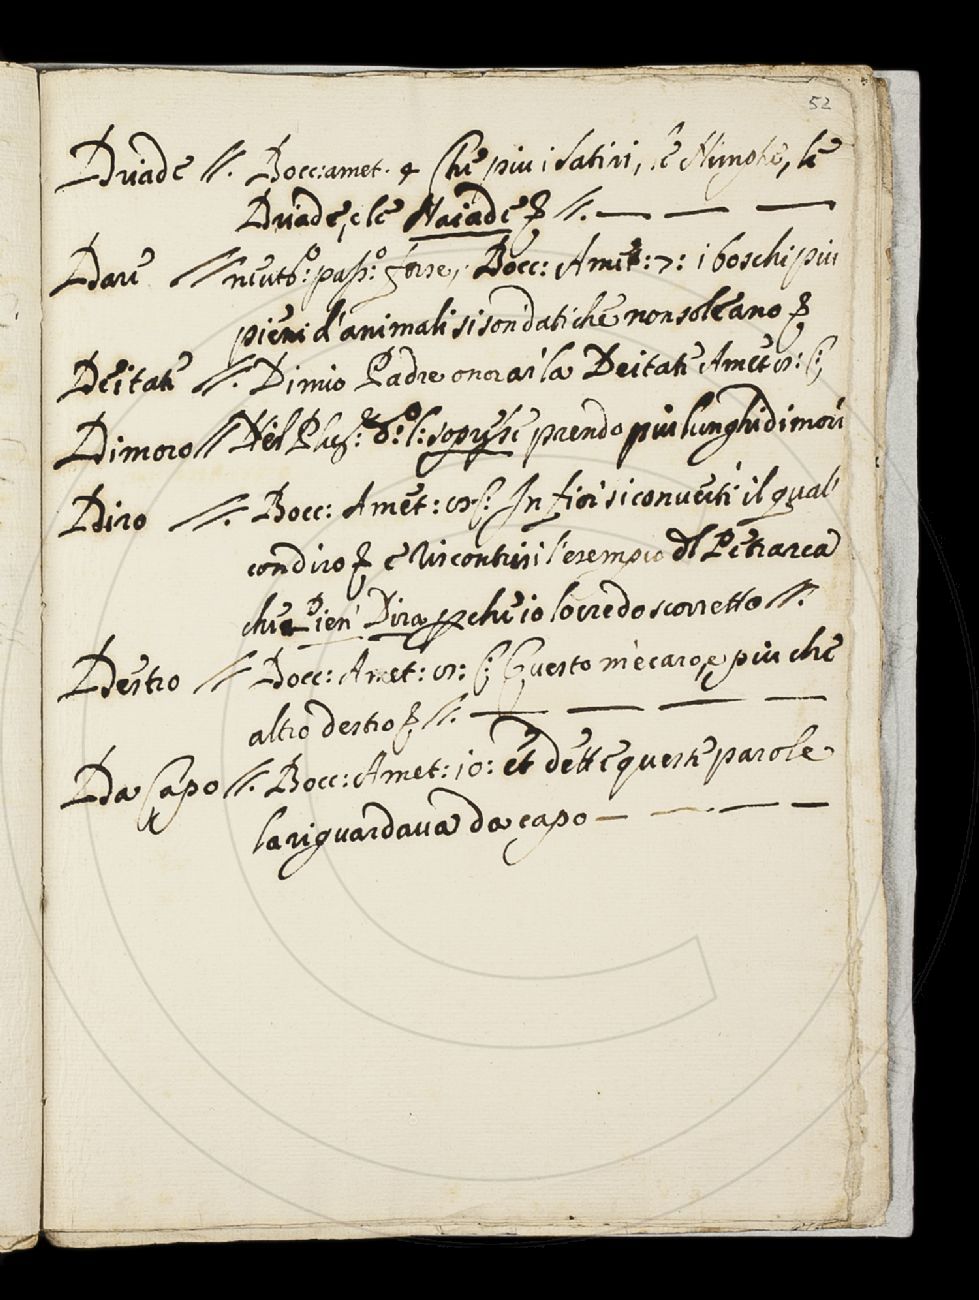 52
Driade //. Bocc: amet. 4 Che piu i satiri, e Nimphe, le
Driade, e le Naiade //.
Dare // neutro: pass:o forse, Bocc: Amet: 7: i boschi piu
pieni d'animali si son dati che non soleano
Deitate //. Di mio Padre onorai la Deitate Amet
Dimoro // Nel prendo piu lunghi dimori
Diro //. Bocc: Amet: In fiori si converti il quale
con diro e riscontrisi l'esempio del Petrarca
che Pien' Dira perche io lo credo scorretto //.
Destro // Bocc: Amet: Questo m'è caro, e piu che
altro destro //.
Da Capo //. Bocc: Amet: 10: et dette queste parole
la riguardava da capo